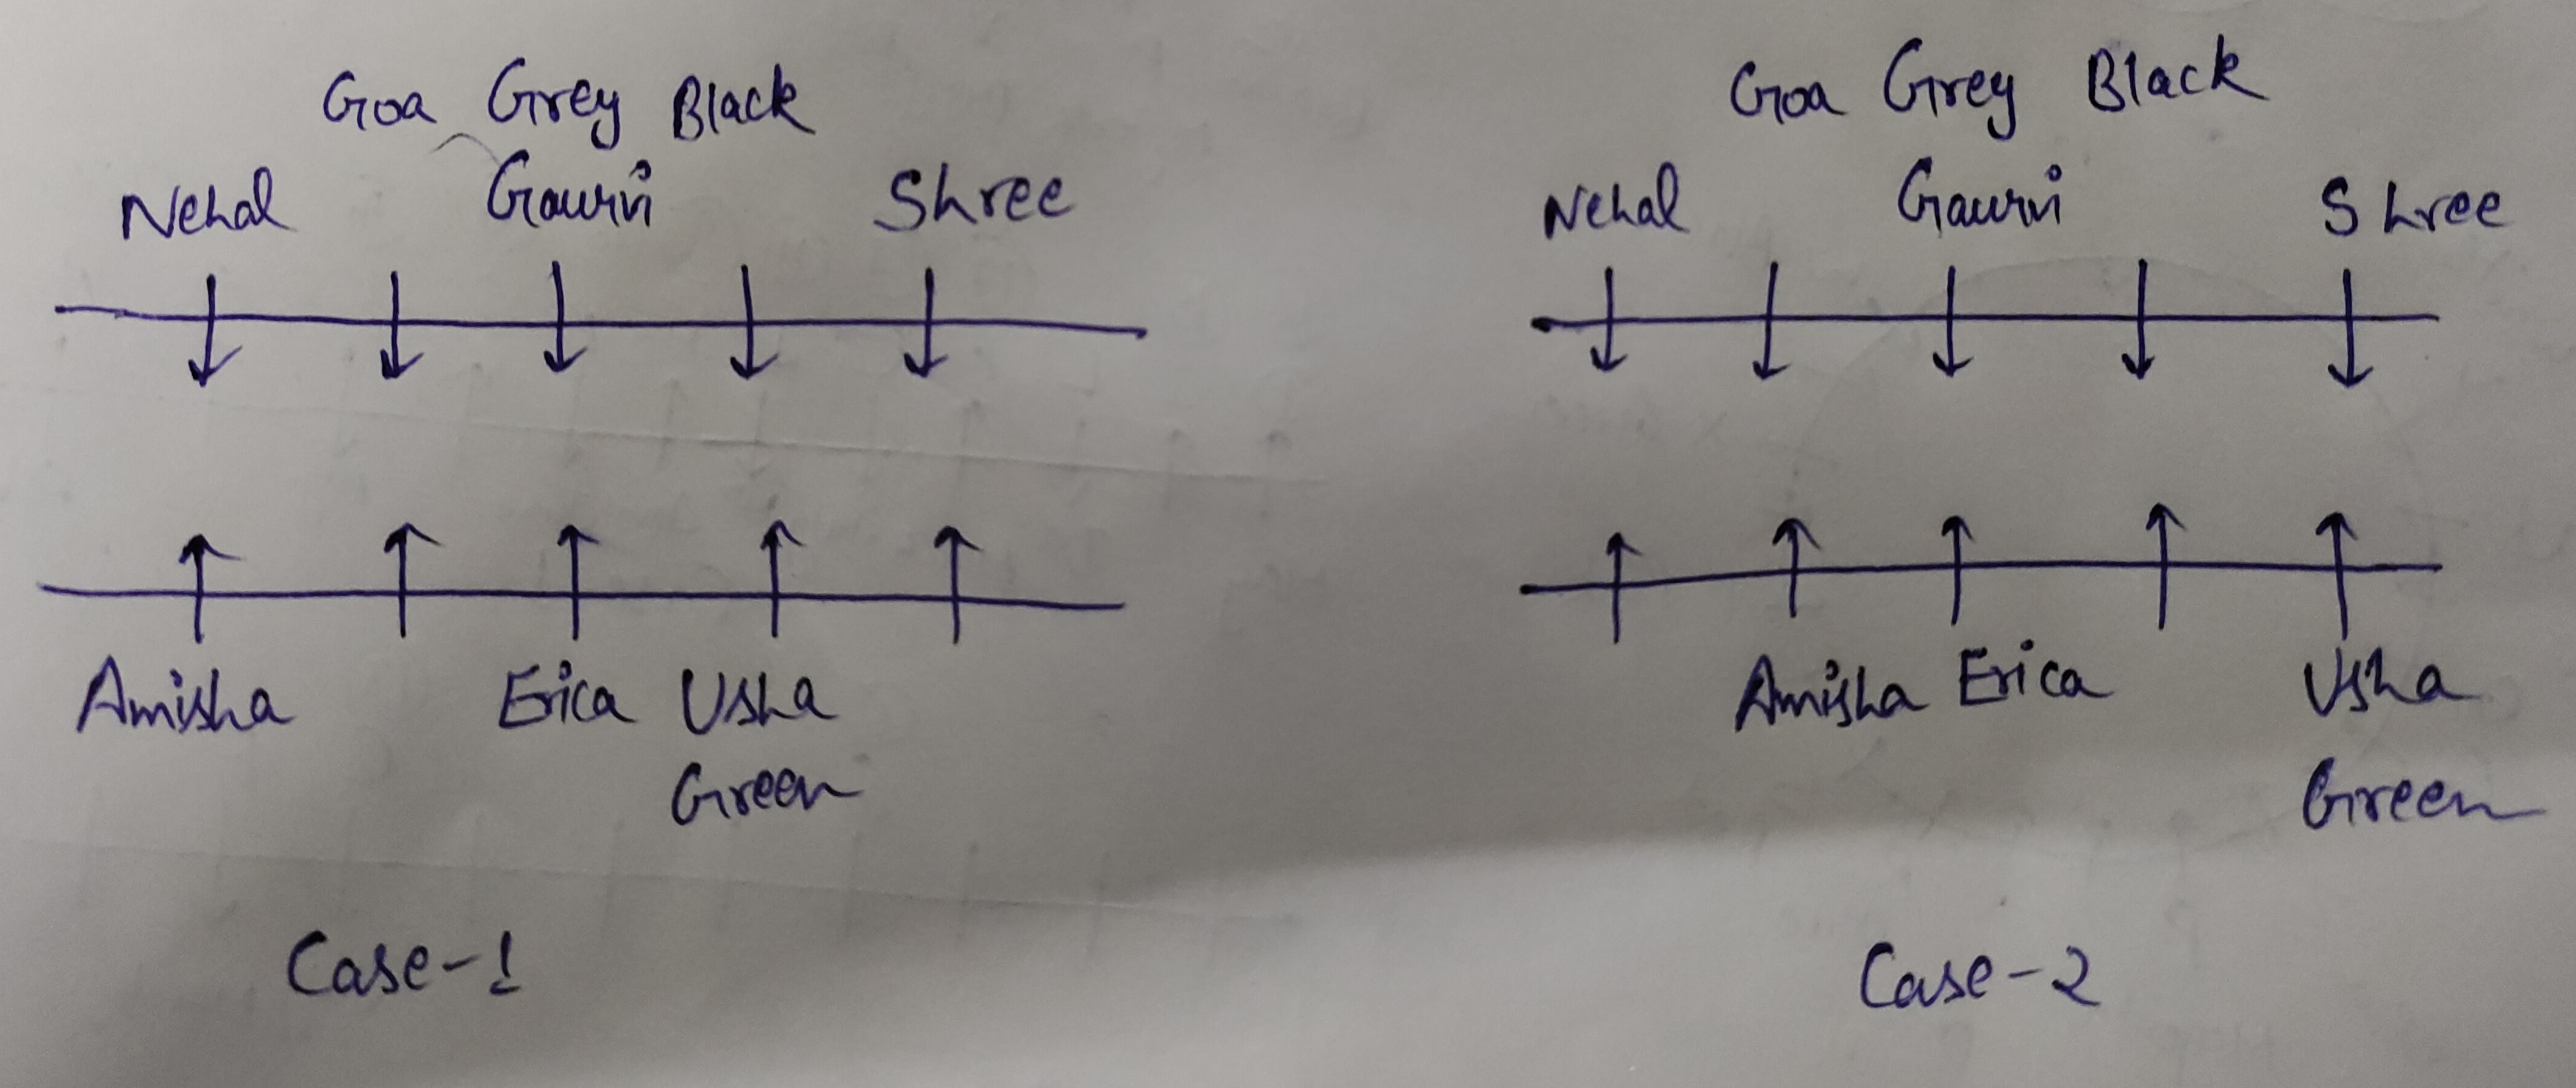 Goa Grey Black
Nehal Gaurvi Shree
Amisha Erica Usha
Green
Case-1
Goa Grey Black
Nehal Gaurvi Shree
Amisha Erica Usha
Green
Case-2